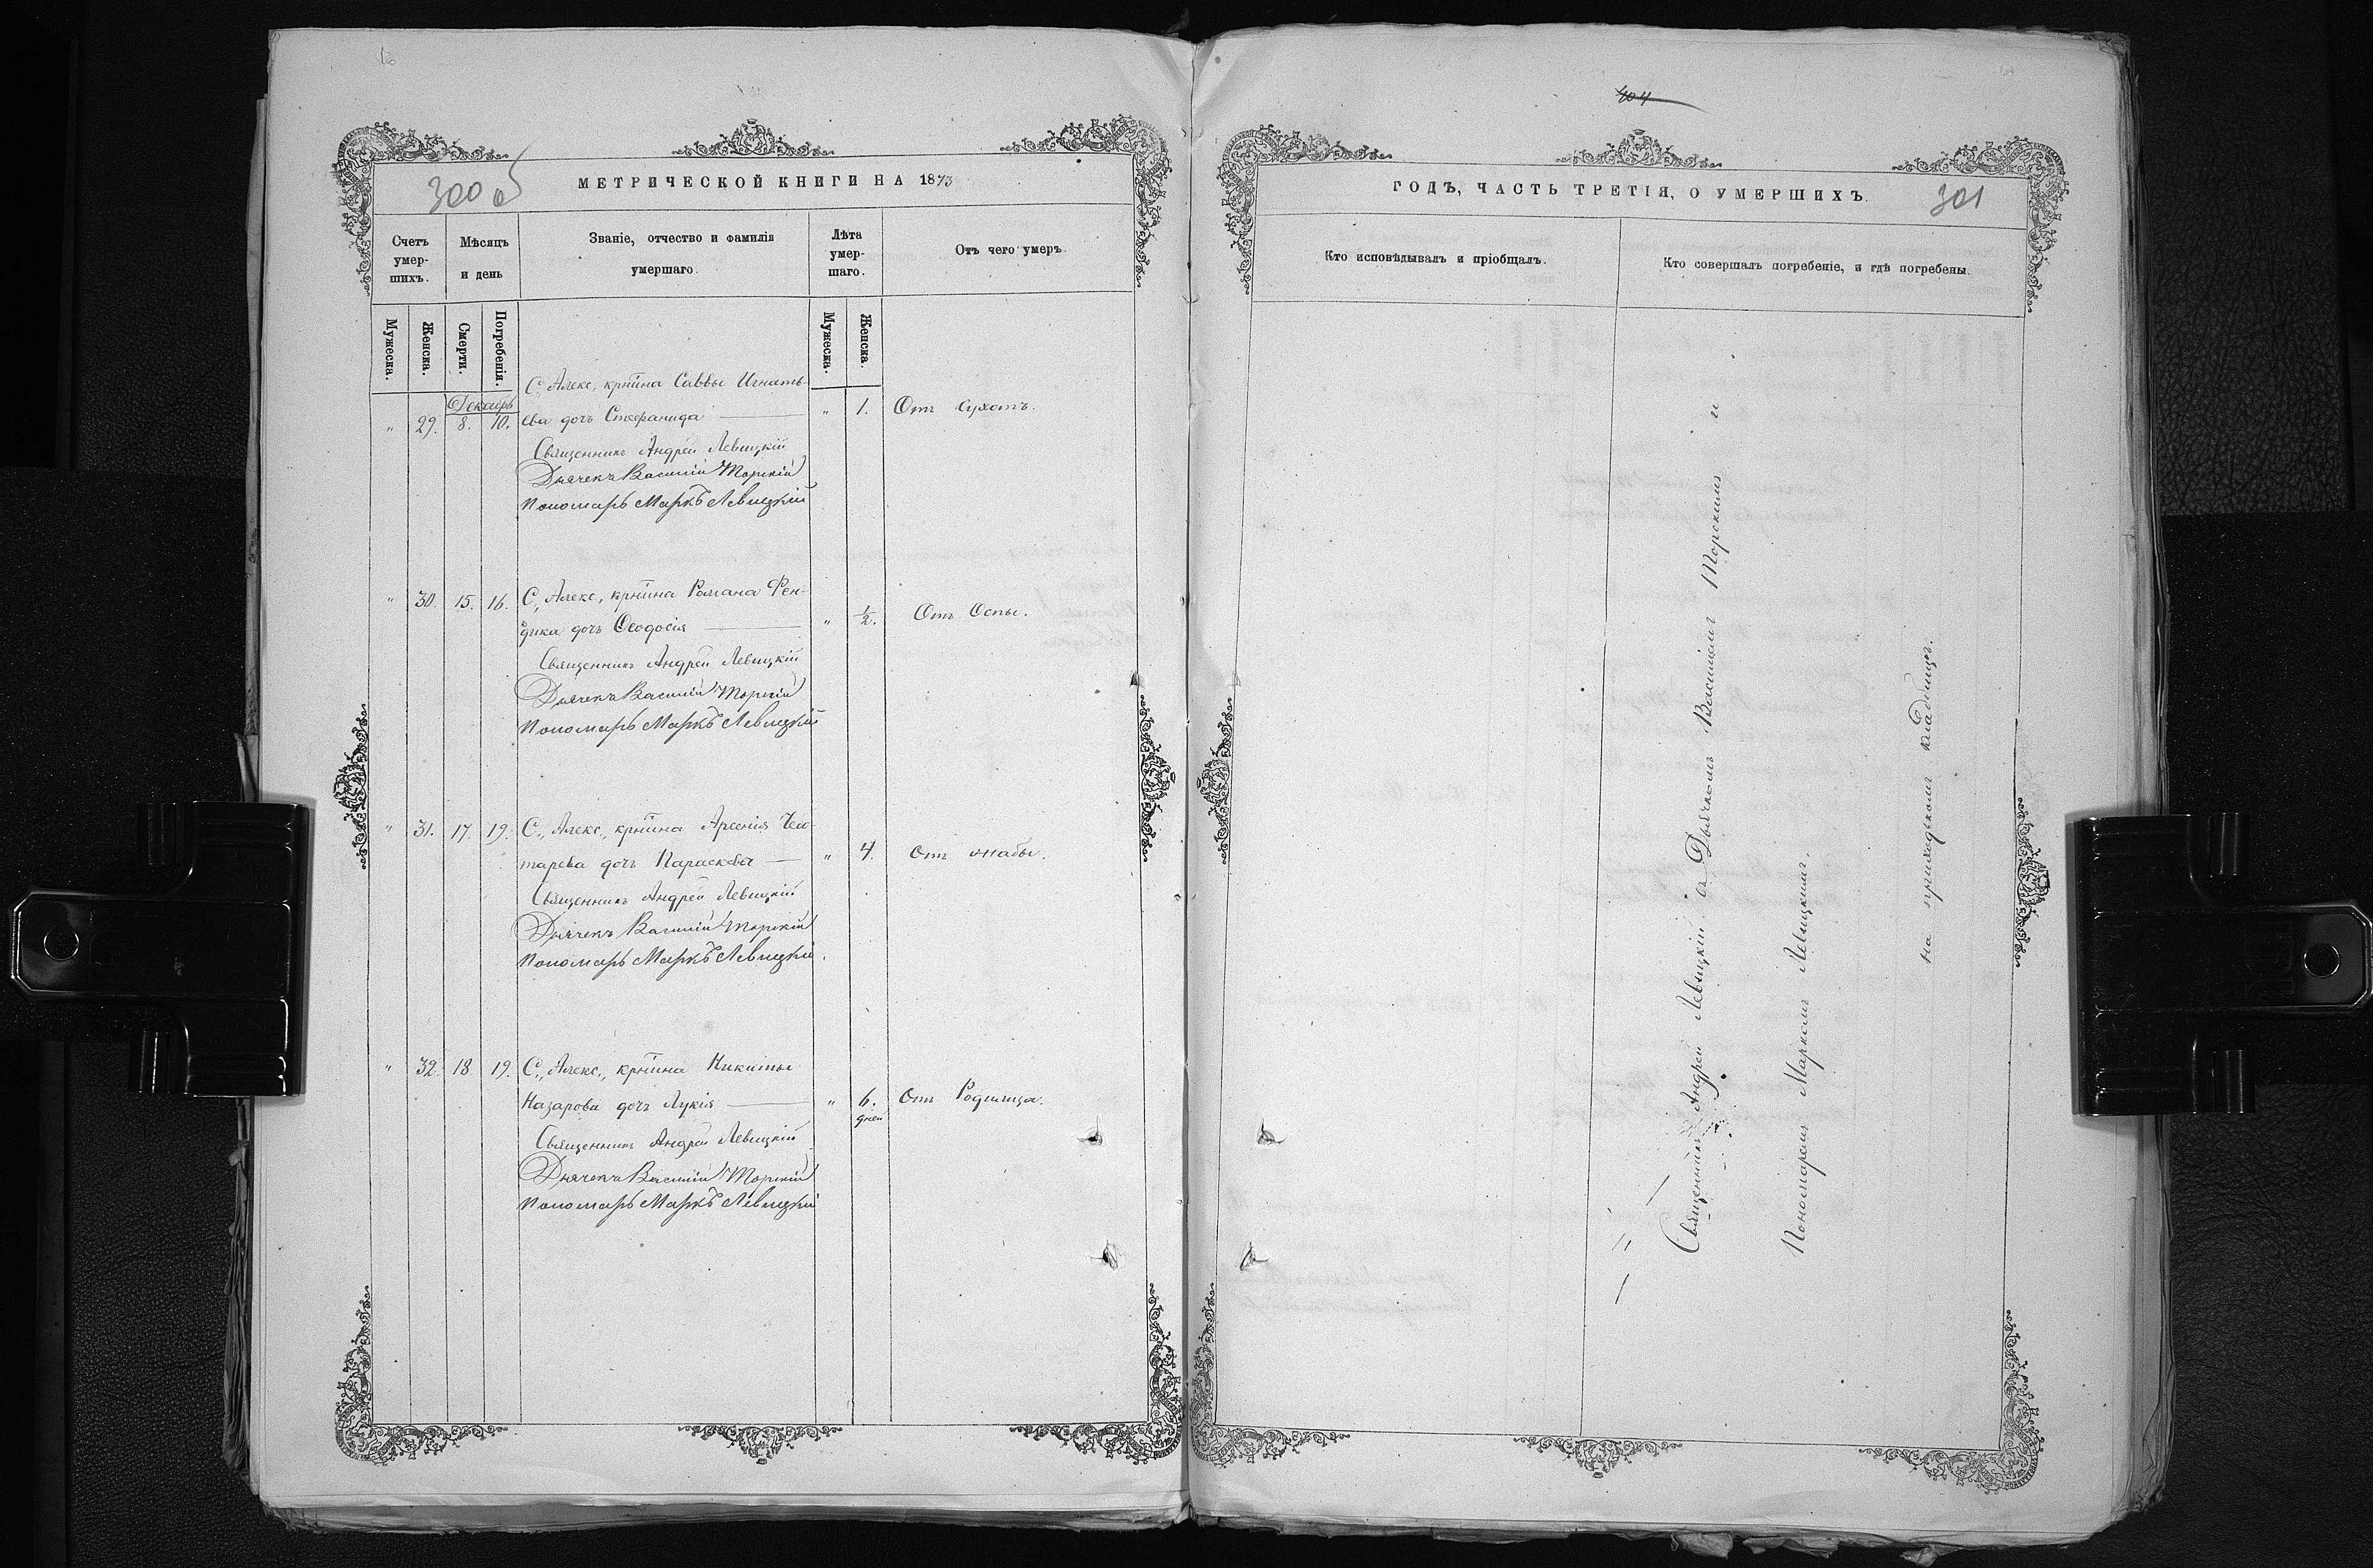 300 об
МЕТРИЧЕСКОЙ КНИГИ НА 1873
Счетъ умер-шихъ.
Мѣсяцъ и день
Званіе, отчество и фамилія умершаго.
Лѣта умер-шаго.
Отъ чего умеръ.
Мужеска.
Женска.
Смерти.
Погребенія.
Мужеска.
Женска.
С. Алекс. крѣтина Саввы Игнать-
Декабрь
" 29. 8. 10. ева дочь Стефанида — " 1. Отъ Сухотъ.
Священникъ Андрей Левицкій
Дьячекъ Василій Торскій
Пономарь Маркъ Левицкій
" 30. 15. 16. С. Алекс. крѣтина Романа Фен-
дика дочь Ѳеодосія — " 1/2. Отъ Оспы.
Священникъ Андрей Левицкій
Дьячекъ Василій Торскій
Пономарь Маркъ Левицкій
" 31. 17. 19. С. Алекс. крѣтина Арсенія
тарева дочь Параскева — " 4. Отъ жабы.
Священникъ Андрей Левицкій
Дьячекъ Василій Торскій
Пономарь Маркъ Левицкій.
" 32. 18. 19. С. Алекс. крѣтина Никиты
Назарова дочь Лукія — " 6. дней Отъ Родимца.
Священникъ Андрей Левицкій
Дьячекъ Василій Торскій
Пономарь Маркъ Левицкій
404
ГОДЪ, ЧАСТЬ ТРЕТІЯ, О УМЕРШИХЪ.
301
Кто исповѣдывалъ и пріобщалъ.
Кто совершалъ погребеніе, и гдѣ погребены.
Священникъ Андрей Левицкій съ Дьячкомъ Василіемъ Торскимъ и
Пономаремъ Маркомъ Левицкимъ.
на приходскомъ кладбищѣ.